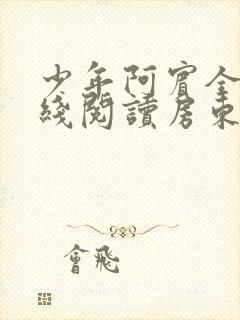 少年阿賓全
綫閱讀房東
會飛